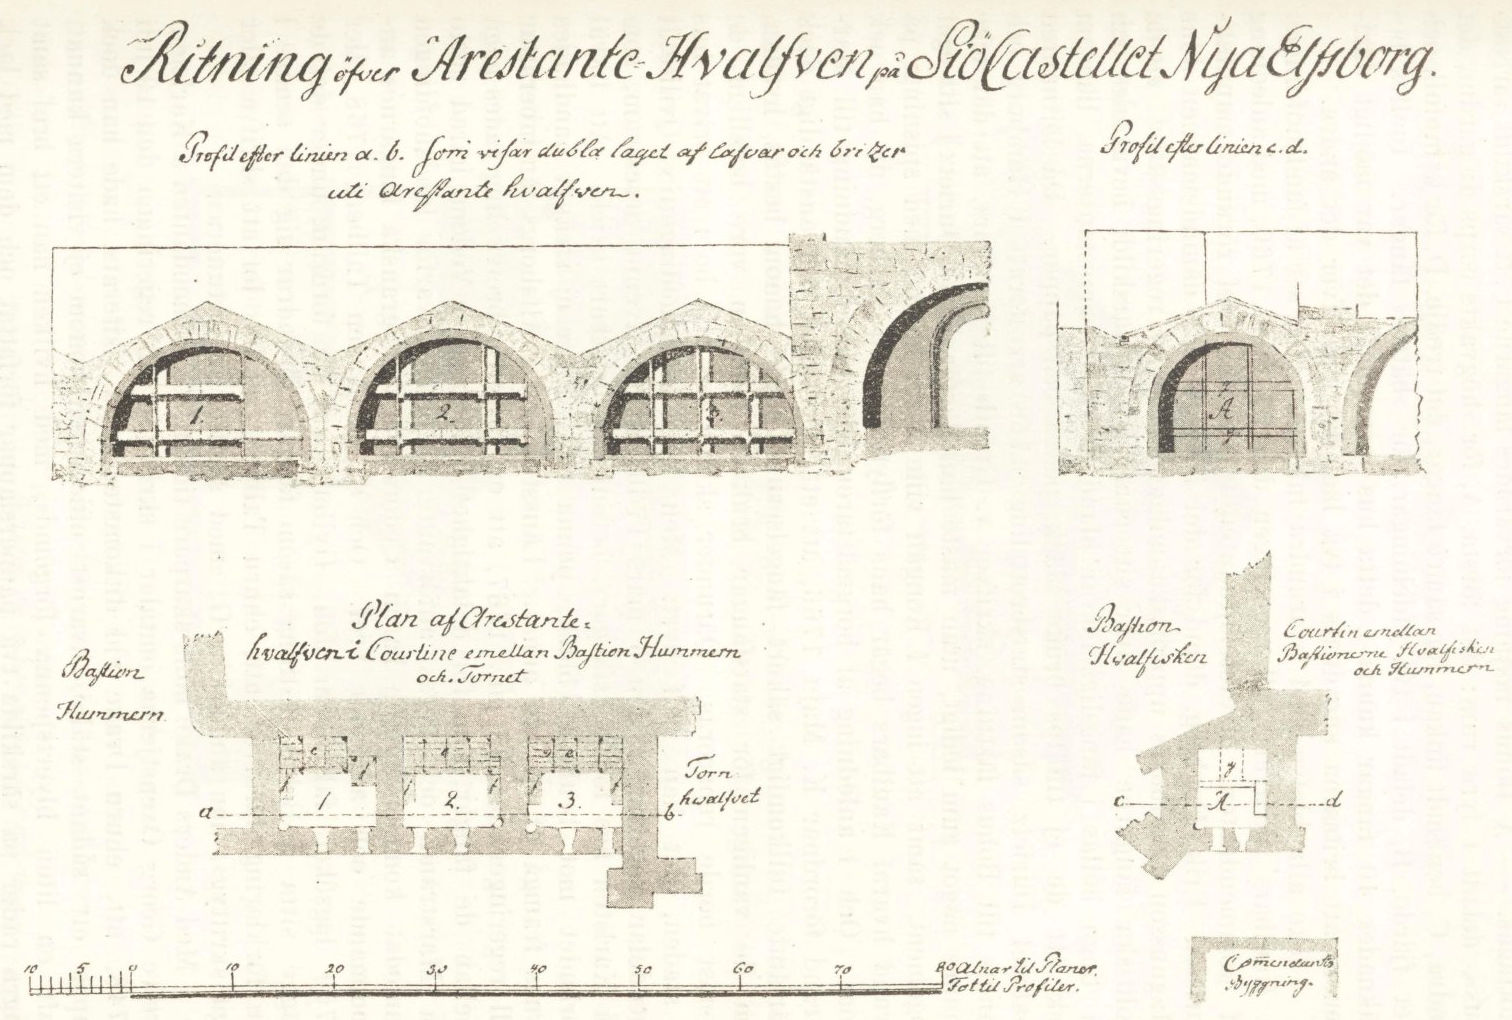 Ritning öfver Arestante-Hvalfven på Siö Castellet Nya Elfsborg.
Profil efter linien a. b. som visar dubla laget af lafvar och britzer
uti Arestante hvalfwen.
Profil efter linien c. d.
1.
2.
3.
g
A
g
Plan af Arestante-
hvalfven i Courtine emellan Bastion Hummern
och Tornet
Bastion
Hummern
Bastion
Hwalfisken
Courtin emellan
Bastionerne Hvalfisken
och Hummern
e
f
e
e
1
2.
3.
a
b
Torn
hwalfvet
g
A
c
d
10 5 0 10 20 30 40 50 60 70 80 Alnar til Planer.
Fot til Profiler.
Com̄endants
Byggning.